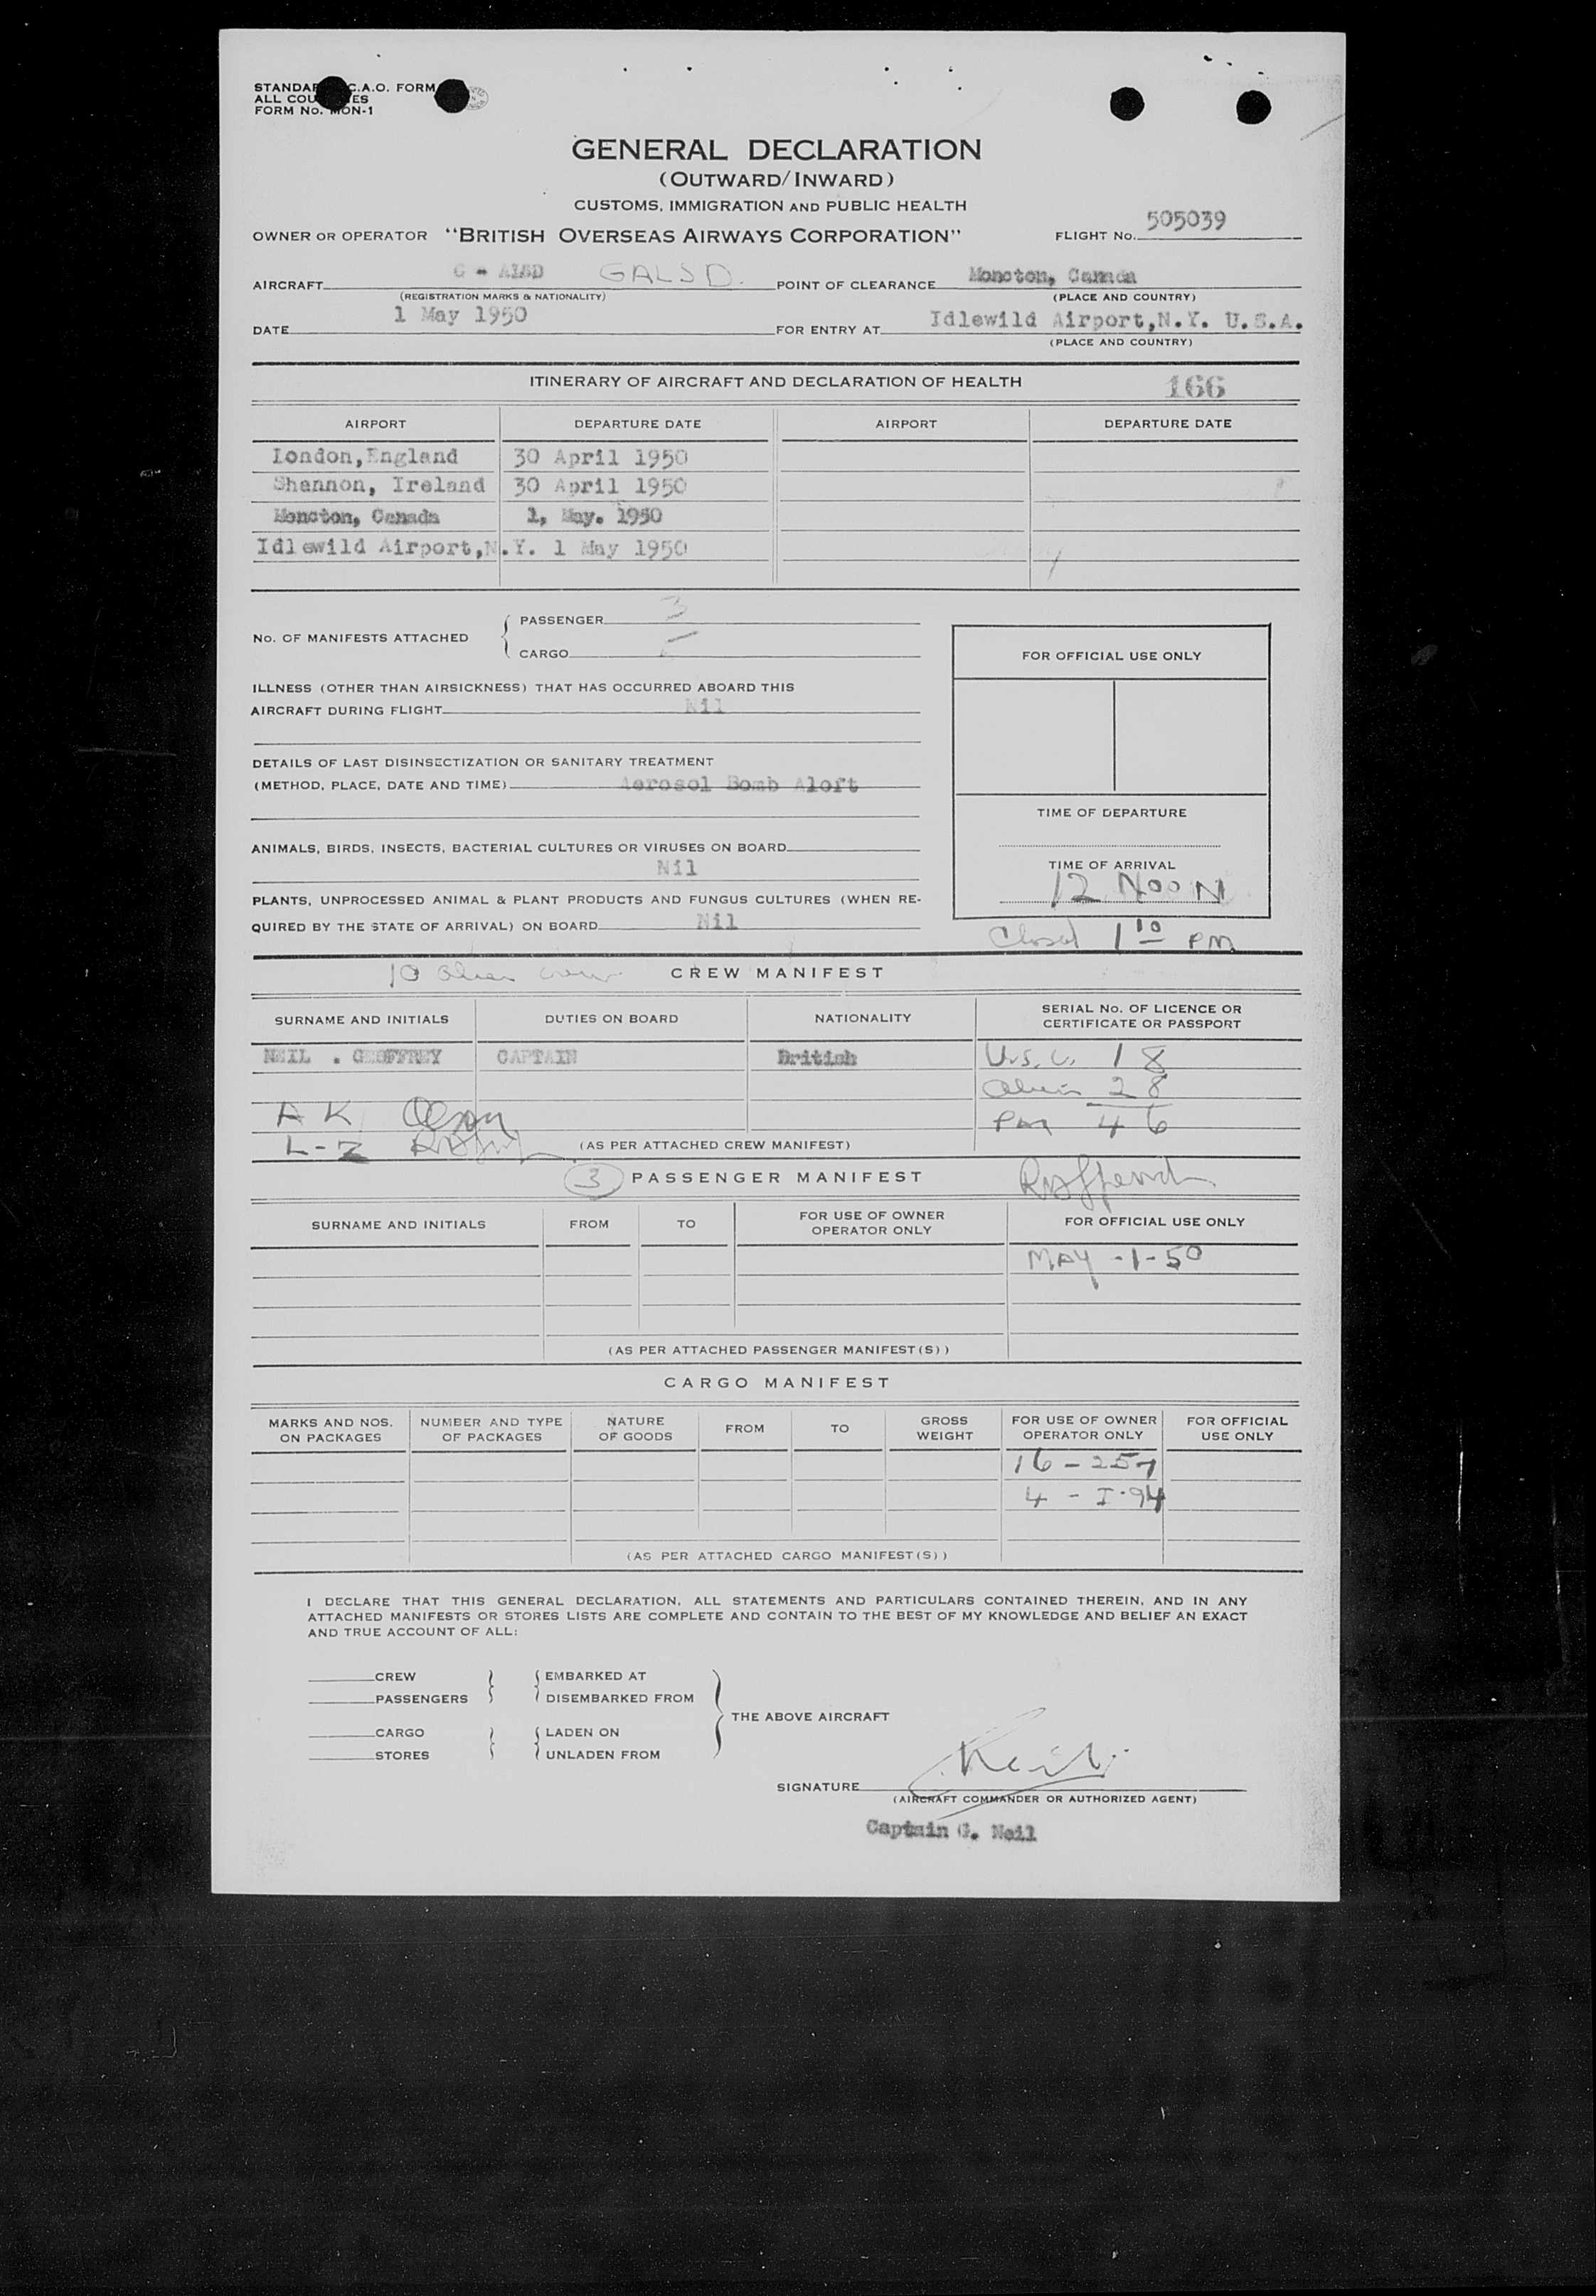 STANDA C.A.O. FORM
ALL COU ES
FORM No. MON-1
GENERAL DECLARATION
(OUTWARD/INWARD)
CUSTOMS, IMMIGRATION AND PUBLIC HEALTH
OWNER OR OPERATOR "BRITISH OVERSEAS AIRWAYS CORPORATION" FLIGHT No. 505039
AIRCRAFT G - ALSD GALSD. POINT OF CLEARANCE Moncton, Canada
(REGISTRATION MARKS & NATIONALITY) (PLACE AND COUNTRY)
DATE 1 May 1950 FOR ENTRY AT Idlewild Airport,N.Y. U.S.A.
(PLACE AND COUNTRY)
ITINERARY OF AIRCRAFT AND DECLARATION OF HEALTH 166
AIRPORT DEPARTURE DATE AIRPORT DEPARTURE DATE
London,England 30 April 1950
Shannon, Ireland 30 April 1950
Moncton, Canada 1, May. 1950
Idlewild Airport,N.Y. 1 May 1950
No. OF MANIFESTS ATTACHED
PASSENGER 3
CARGO —
FOR OFFICIAL USE ONLY
ILLNESS (OTHER THAN AIRSICKNESS) THAT HAS OCCURRED ABOARD THIS
AIRCRAFT DURING FLIGHT Nil
DETAILS OF LAST DISINSECTIZATION OR SANITARY TREATMENT
(METHOD, PLACE, DATE AND TIME) Aerosol Bomb Aloft
TIME OF DEPARTURE
ANIMALS, BIRDS, INSECTS, BACTERIAL CULTURES OR VIRUSES ON BOARD
Nil
TIME OF ARRIVAL
12 NOON
PLANTS, UNPROCESSED ANIMAL & PLANT PRODUCTS AND FUNGUS CULTURES (WHEN RE-
QUIRED BY THE STATE OF ARRIVAL) ON BOARD Nil
Closed 1 10 PM
10 alien crew CREW MANIFEST
SURNAME AND INITIALS DUTIES ON BOARD NATIONALITY SERIAL No. OF LICENCE OR
CERTIFICATE OR PASSPORT
NEIL . GEOFFREY CAPTAIN British U.S.C. 18
Alien 28
A K PM 46
L-Z (AS PER ATTACHED CREW MANIFEST)
3 PASSENGER MANIFEST
SURNAME AND INITIALS FROM TO FOR USE OF OWNER
OPERATOR ONLY FOR OFFICIAL USE ONLY
MAY -1-50
(AS PER ATTACHED PASSENGER MANIFEST(S))
CARGO MANIFEST
MARKS AND NOS. ON PACKAGES NUMBER AND TYPE OF PACKAGES NATURE OF GOODS FROM TO GROSS WEIGHT FOR USE OF OWNER OPERATOR ONLY FOR OFFICIAL USE ONLY
16 - 257
4 - I-94
(AS PER ATTACHED CARGO MANIFEST(S))
I DECLARE THAT THIS GENERAL DECLARATION, ALL STATEMENTS AND PARTICULARS CONTAINED THEREIN, AND IN ANY
ATTACHED MANIFESTS OR STORES LISTS ARE COMPLETE AND CONTAIN TO THE BEST OF MY KNOWLEDGE AND BELIEF AN EXACT
AND TRUE ACCOUNT OF ALL:
CREW EMBARKED AT
PASSENGERS DISEMBARKED FROM
THE ABOVE AIRCRAFT
CARGO LADEN ON
STORES UNLADEN FROM
SIGNATURE Neil
(AIRCRAFT COMMANDER OR AUTHORIZED AGENT)
Captain G. Neil